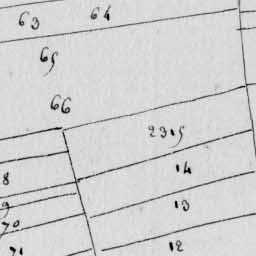 63 64
65
66
2315
14
8
13
9
70
12
71